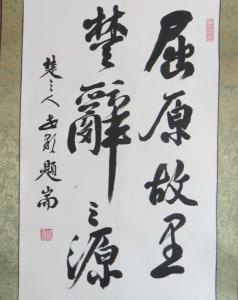 屈原故里
楚辭之源
楚之人
題耑